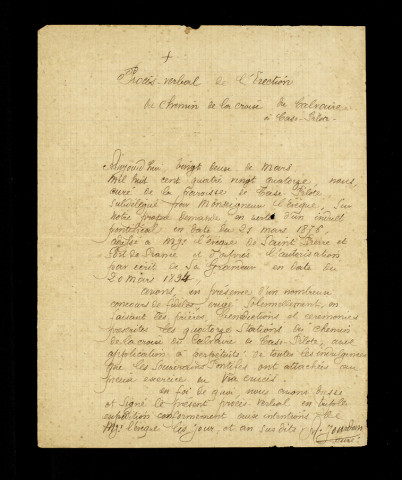 +
Procès-verbal de l'Erection
du Chemin de la croix du Calvaire
à Case-Pilote
Aujourd'hui, vingt deux de Mars
Mil huit cent quatre vingt quatorze, nous,
curé de la Paroisse de Case-Pilote
subdélégué par Monseigneur l'évêque, sur
notre propre demande en vertu d'un indult
pontifical en date du 21 mars 1876,
à Mgr l'évêque de Saint Pierre et
Fort de France et d'après l'autorisation
par écrit de Sa Grandeur en date du
20 Mars 1894
avons, en présence d'un nombreux
concours de fidèles, érigé solennellement, en
faisant les prières, bénédictions et cérémonies
prescrites les quatorze Stations du Chemin
de la croix du Calvaire de Case-Pilote, avec
application à perpétuité de toutes les indulgences
que les Souverains Pontifes ont attachées au
pieux exercice du Via Crucis.
en foi de quoi, nous avons dressé
et signé le présent procès verbal, en
expédition conformément aux intentions de
Mgr l'évêque les jour, et an sus dits. J. Jourdan
curé.